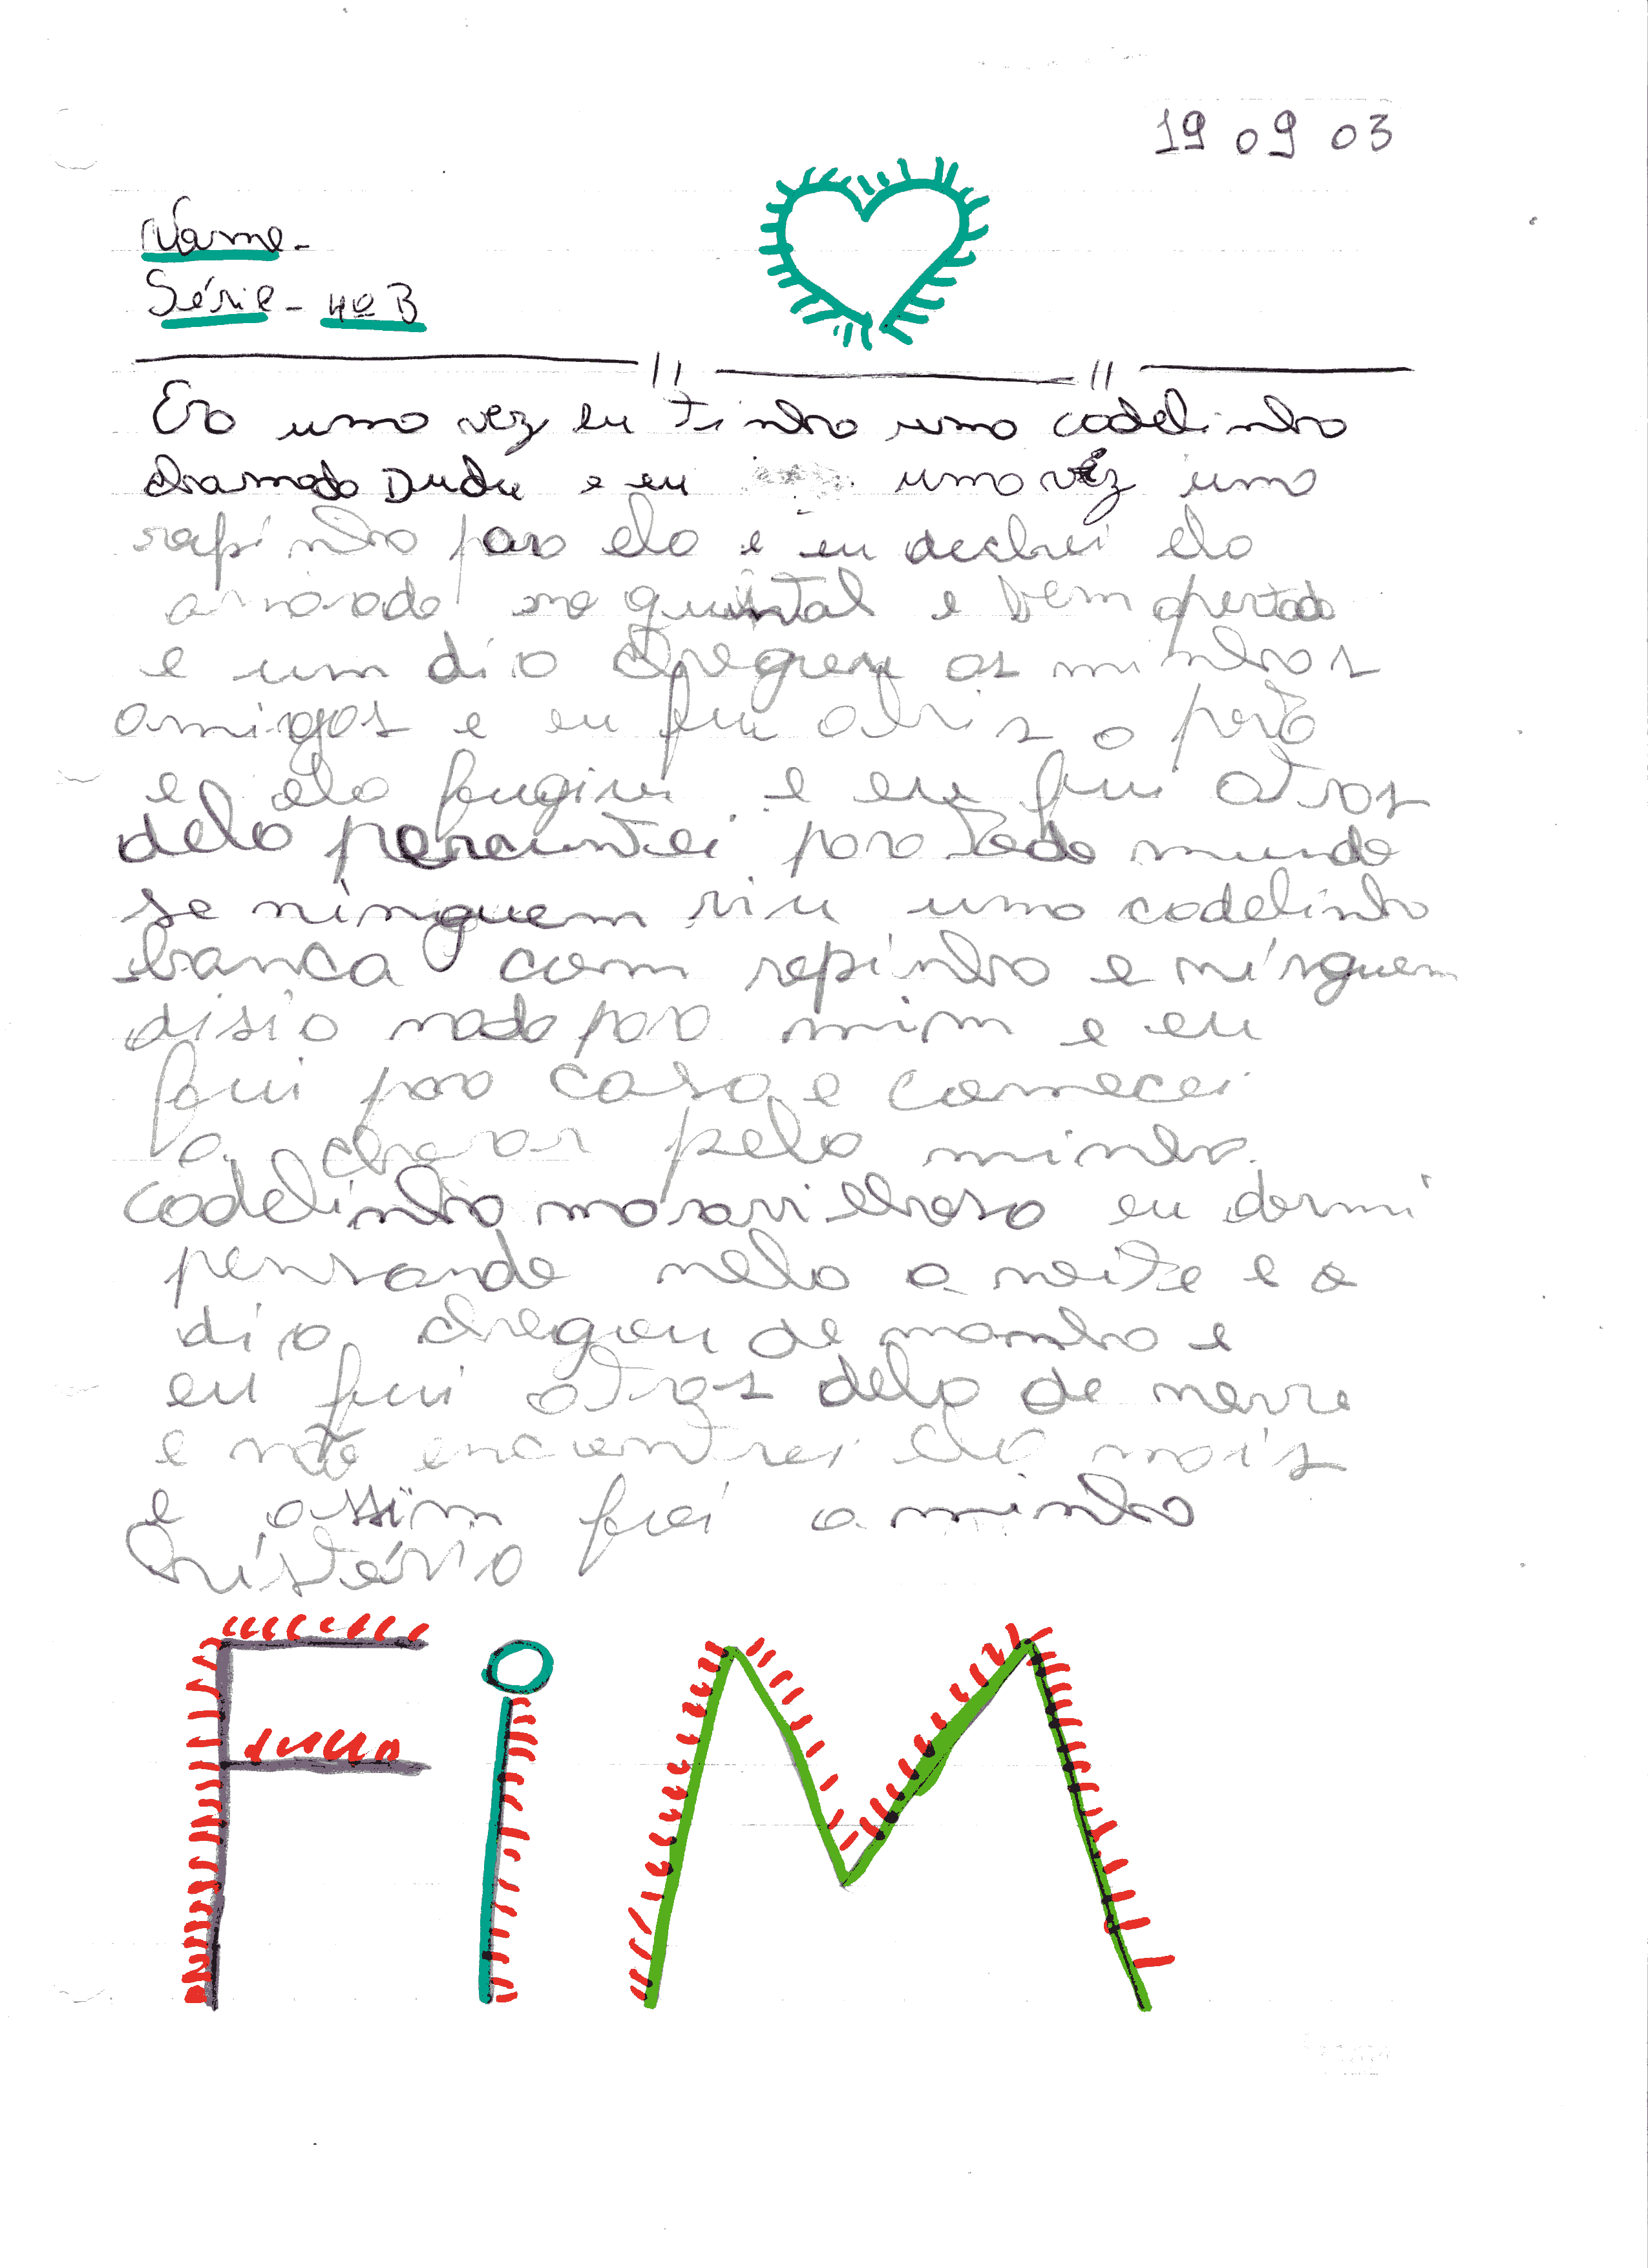 19 09 03
Nome-
Série- 4ª B
Era uma vez eu tinha uma cadelinha
chamada Dudu e eu uma vez uma
rapinha para ela e eu dechei ela
amarada no quintal e bem apertado
e um dia chegou as minhas
amigas e eu fui abris o portão
e ela fugiu e eu fui atras
dela perguntei para todo mundo
se ninguem viu uma cadelinha
branca com ropinha e ninguem
disia nada para mim e eu
fui para casa e comecei
a chorar pela minha
cadelinha maravilhosa eu dormi
pensando nela a noite e o
dia chegou de manha e
eu fui atras dela de novo
e não encontrei ela mais
e assim foi a minha
istória
FiM